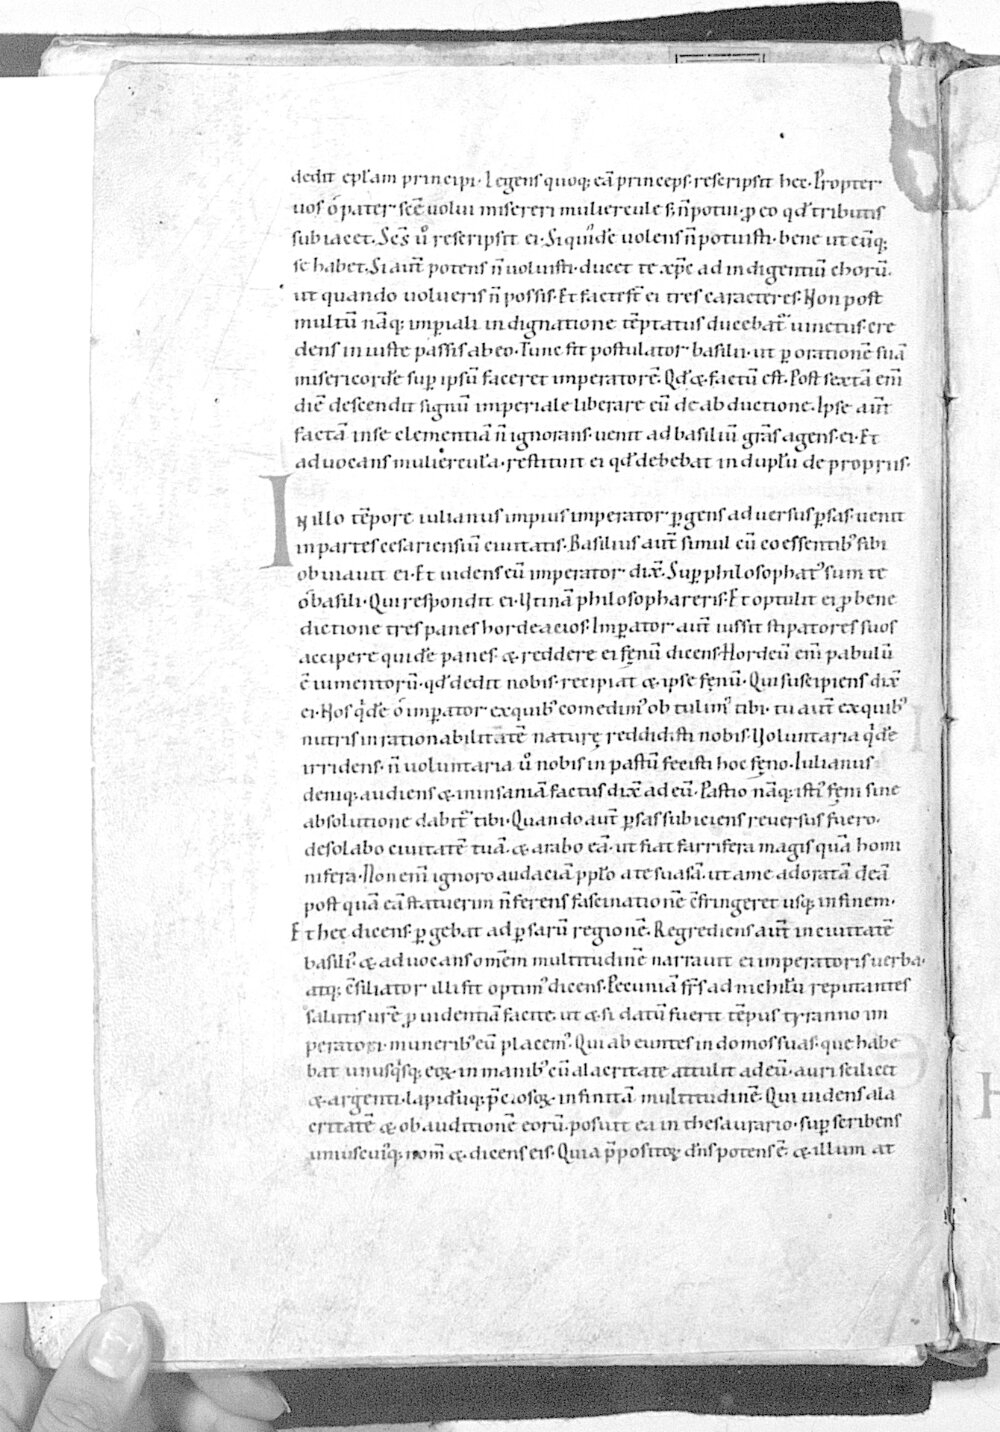 dedit epłam principi. Legens quoq; eā princeps. rescripsit hec. Propter
uos ó pater scē uolui misereri muliercule. s; n̄ potui. p eo qđ tributis
subiacet. Scs̄ ů rescripsit ei. Si quidē uolens n̄ potuisti. bene ut cūq;
se habet. Si aut̄ potens n̄ uoluisti. ducet te xp̄c ad indigentiū chorū.
ut quando uolueris n̄ possis. Et factest̄ ei tres caracteres. Non post
multū nāq; imperiali indignatione tēptatus ducebat̃ uinctus. cre
dens iniuste passis ab eo. Tunc fit postulator basilii. ut p orationē suā
misericordē sup ipsū faceret imperatorē. Qđ & factū est. Post sextā em̄
diē descendit signū imperiale liberare eū de abductione. Ipse aut̄
factā in se clementiā n̄ ignorans. uenit ad basiliū grās agens. ei. Et
aduocans mulierculā. restituit ei qđ debebat in duplū de propriis.
In illo tēpore iulianus impius imperator pgens aduersus psas. uenit
in partes cesariensiū ciuitatis. Basilius aut̄ simul cū coessentib; sibi
obuiauit ei. Et uidens eū imperator dix̄. Supphilosophat' sum te
ó basili. Qui respondit ei. Utinā philosophareris. Et optulit ei p bene
dictione tres panes hordeacios. Imperator aut̄ iussit stipatores suos
accipere quidē panes. & reddere ei fęnū dicens. Hordeū em̄ pabulū
ē iumentorū. qđ dedit nobis. recipiat & ipse fęnū. Qui suscipiens dix̄
ei. Nos qdē ó imperator ex quib; comedim' obtulim' tibi. tu aut̄ ex quib;
nutris inrationabilitatē naturę reddidisti nobis. Uoluntaria qdē
irridens. n̄ uoluntaria ů nobis in pastū fecisti hoc fęno. Iulianus
deniq; audiens & in insaniā factus dix̄ ad eū. Pastio nāq; isti' fęni sine
absolutione dabit̃ tibi. Quando aut̄ psas subiciens reuersus fuero.
desolabo ciuitatē tuā. & arabo eā. ut fiat farrifera magis quā homi
nifera. Non em̄ ignoro audaciā ppło a te suasā. ut a me adoratā deā
post quā eā statuerim n̄ ferens fascinationē c̄fringeret usq; in finem.
Et hęc dicens. pgebat ad psarū regionē. Regrediens aut̄ in ciuitatē
basili' & aduocans om̄em multitudinē narrauit ei imperatoris uerba.
atq; c̄siliator illi fit optim' dicens. Pecuniā frs̄ ad nichilū reputantes
salutis ur̄e puidentiā facite. ut & si datū fuerit tēpus tyranno im
peratori. munerib; eū placem'. Qui abeuntes in domos suas. que habe
bat unusqsq; eoꝝ. in manib; cū alacritate attulit ad eū. auri scilicet
& argenti. lapidūq; p̄ciosoꝝ. infinitā multitudinē. Qui uidens ala
critatē & obauditionē eorū. posuit ea in thesaurario. supscribens
uniuscuiq; nom̄ & dicens eis. Quia p̄positoꝝ dn̄s potens ē. & illum at